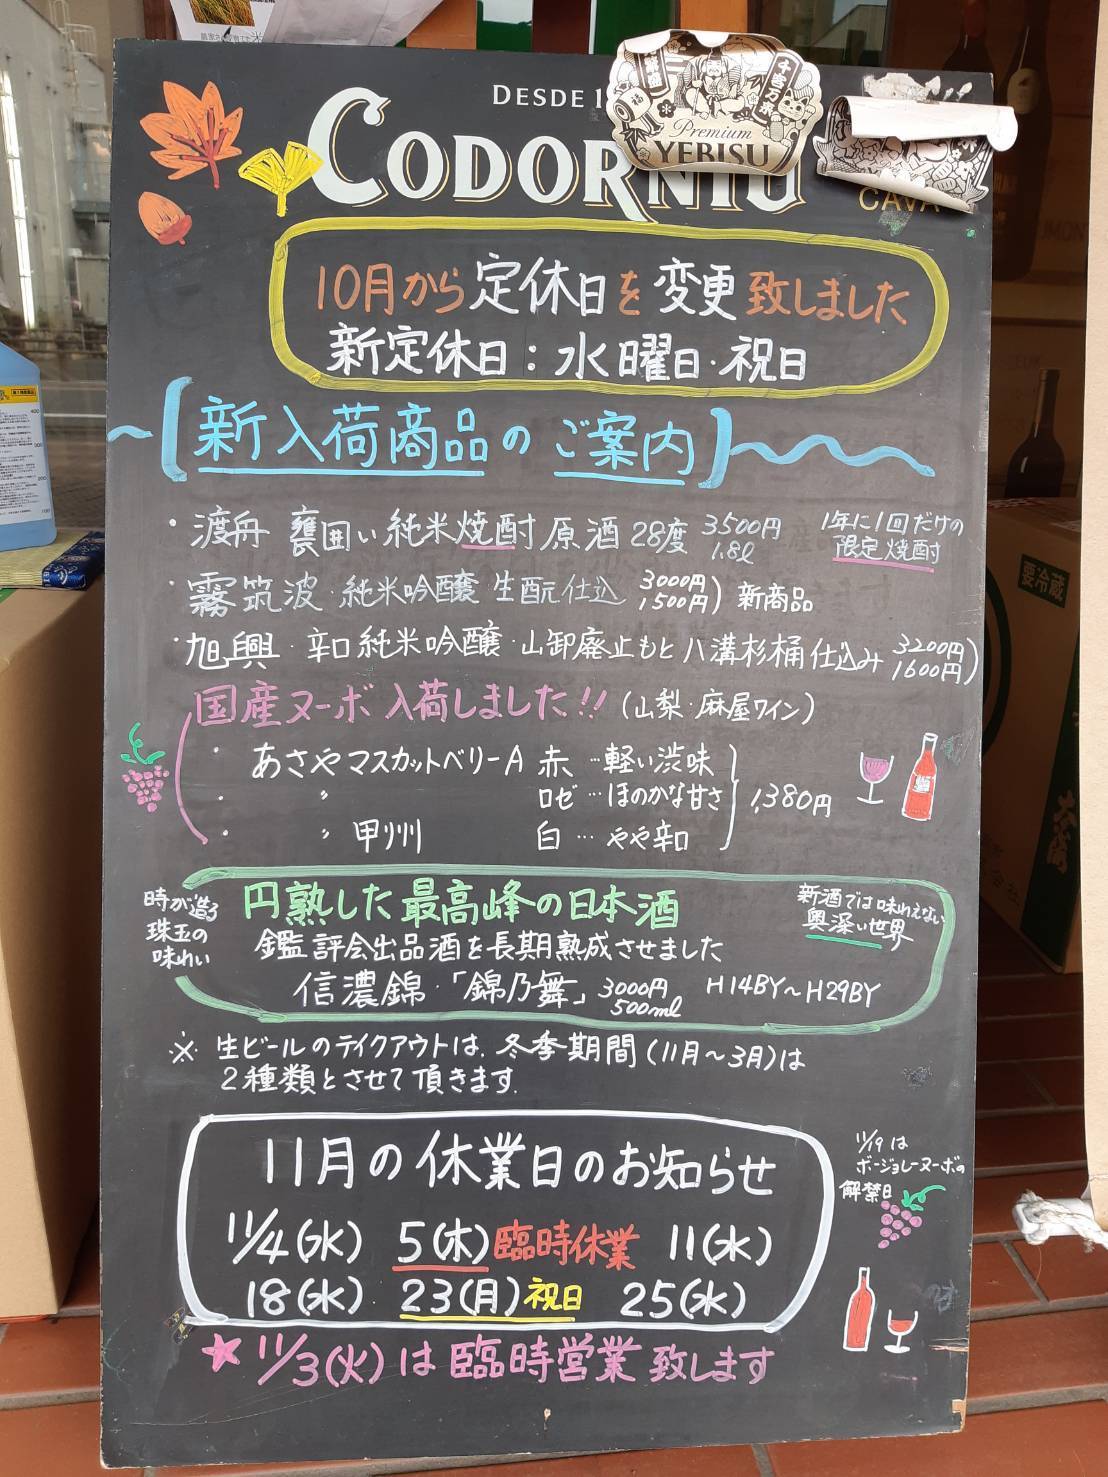 DESDE 1
CODORNIU
CAVA
千客万来
Premium
YEBISU
10月から定休日を変更致しました
新定休日：水曜日・祝日
【新入荷商品のご案内】
・渡舟 甕囲い純米焼酎原酒28度 3500円 1.8ℓ
1年に1回だけの
限定焼酎
・霧筑波・純米吟醸 生酛仕込 3000円 1500円) 新商品
・旭興・辛口純米吟醸・山卸廃止もと八溝杉桶仕込み 3200円 1600円)
国産ヌーボ入荷しました!!(山梨・麻屋ワイン)
・あさやマスカットベリーA 赤…軽い渋味
・〃 ロゼ…ほのかな甘さ 1,380円
・〃 甲州 白…やや辛口
時が造る
珠玉の
味わい
円熟した最高峰の日本酒
新酒では味わえない
奥深い世界
鑑評会出品酒を長期熟成させました
信濃錦・「錦乃舞」 3000円 500ml H14BY〜H29BY
※生ビールのテイクアウトは、冬季期間(11月〜3月)は
2種類とさせて頂きます。
11月の休業日のお知らせ
11/4(水) 5(木)臨時休業 11(水)
18(水) 23(月)祝日 25(水)
11/19は
ボージョレーヌーボの
解禁日
★11/3(火)は臨時営業致します
要冷蔵